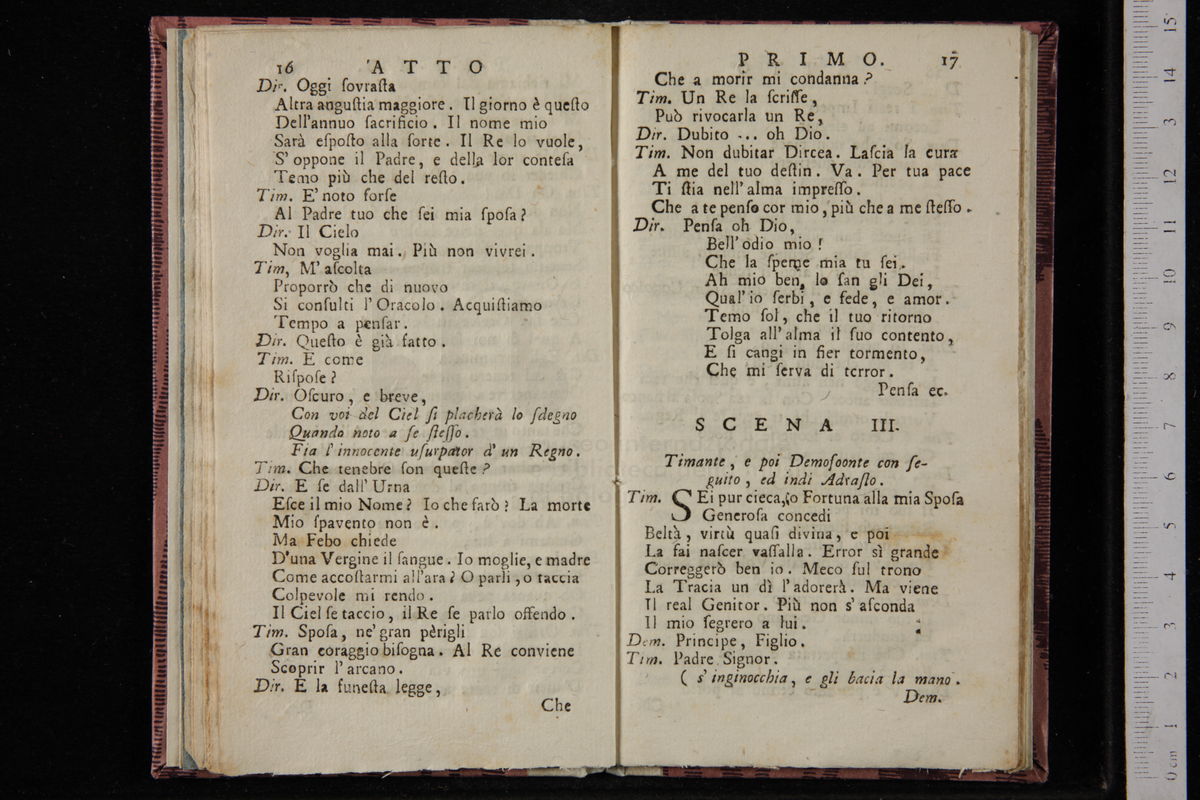 16 ATTO
Dir. Oggi ſovraſta
Altra anguſtia maggiore. Il giorno è queſto
Dell'annuo ſacrificio. Il nome mio
Sarà eſpoſto alla ſorte. Il Re lo vuole,
S' oppone il Padre, e della lor conteſa
Temo più che del reſto.
Tim. E' noto forſe
Al Padre tuo che ſei mia ſpoſa?
Dir. Il Cielo
Non voglia mai. Più non vivrei.
Tim, M' aſcolta
Proporrò che di nuovo
Si conſulti l' Oracolo. Acquiſtiamo
Tempo a penſar.
Dir. Queſto è già fatto.
Tim. E come
Riſpoſe?
Dir. Oſcuro, e breve,
Con voi del Ciel ſi placherà lo ſdegno
Quando noto a ſe ſteſſo.
Fia l' innocente uſurpator d' un Regno.
Tim. Che tenebre ſon queſte?
Dir. E ſe dall' Urna
Eſce il mio Nome? Io che farò? La morte
Mio ſpavento non è.
Ma Febo chiede
D'una Vergine il ſangue. Io moglie, e madre
Come accoſtarmi all'ara? O parli, o taccia
Colpevole mi rendo.
Il Ciel ſe taccio, il Re ſe parlo offendo.
Tim. Spoſa, ne' gran pèrigli
Gran coraggio biſogna. Al Re conviene
Scoprir l' arcano.
Dir. E la funeſta legge,
Che
PRIMO. 17
Che a morir mi condanna?
Tim. Un Re la ſcriſſe,
Può rivocarla un Re,
Dir. Dubito ... oh Dio.
Tim. Non dubitar Dircea. Laſcia la cura
A me del tuo deſtin. Va. Per tua pace
Ti ſtia nell' alma impreſſo.
Che a te penſo cor mio, più che a me ſteſſo.
Dir. Penſa oh Dio,
Bell' odio mio!
Che la ſpeme mia tu ſei.
Ah mio ben, lo ſan gli Dei,
Qual' io ſerbi, e fede, e amor.
Temo ſol, che il tuo ritorno
Tolga all' alma il ſuo contento,
E ſi cangi in fier tormento,
Che mi ſerva di terror.
Penſa ec.
SCENA III.
Timante, e poi Demofoonte con ſe-
guito, ed indi Adraſto.
Tim. SEi pur cieca, o Fortuna alla mia Spoſa
Generoſa concedi
Beltà, virtù quaſi divina, e poi
La fai naſcer vaſſalla. Error sì grande
Correggerò ben io. Meco ſul trono
La Tracia un dì l' adorerà. Ma viene
Il real Genitor. Più non s' aſconda
Il mio ſegreto a lui.
Dem. Principe, Figlio.
Tim. Padre Signor.
( s' inginocchia, e gli bacia la mano.
Dem.
15
14
13
12
11
10
9
8
7
6
5
4
3
2
1
0 cm